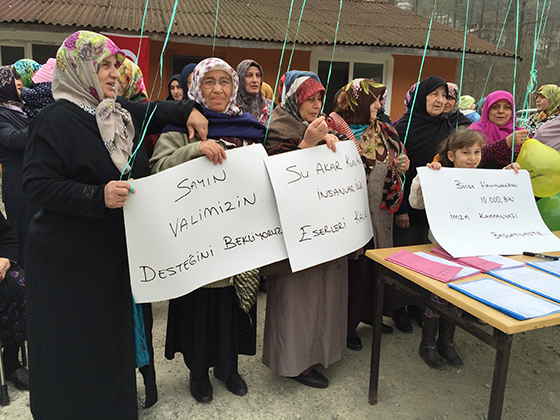 SAYIN
VALİMİZİN
DESTEĞİNİ BEKLİYORUZ
SU AKAR
İNSANLAR
ESERLERİ
10.000, BİN
İMZA KAMPANYASI
BAŞLATILMIŞTIR